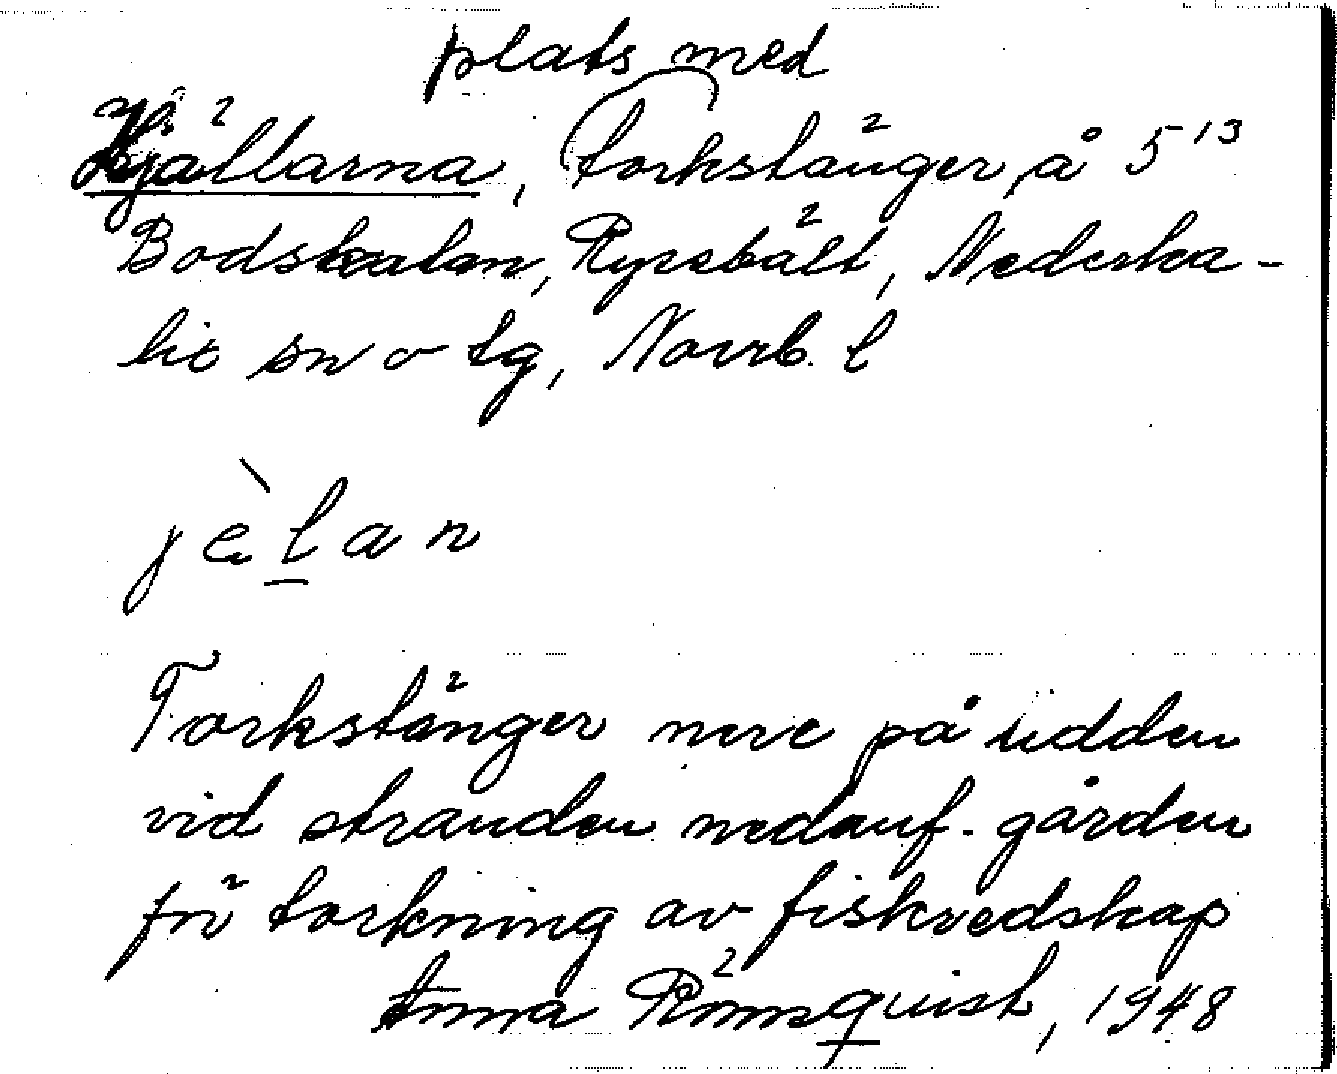 plats med
Hjällarna, torkstänger, å 5 13
Bodskatan, Ryssbält, Nederka-
lix sn o tg, Norrb. l
jèlan
Torkstänger nere på udden
vid stranden nedanf. gården
för torkning av fiskredskap
Anna Rönnquist, 1948